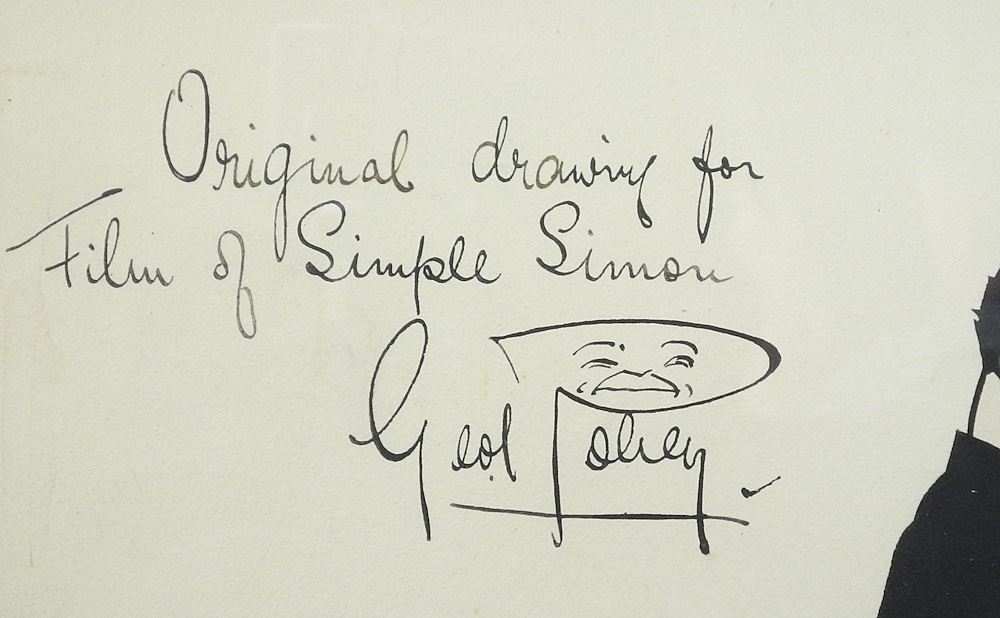 Original drawing for
Film of Simple Simon
Geo Robey